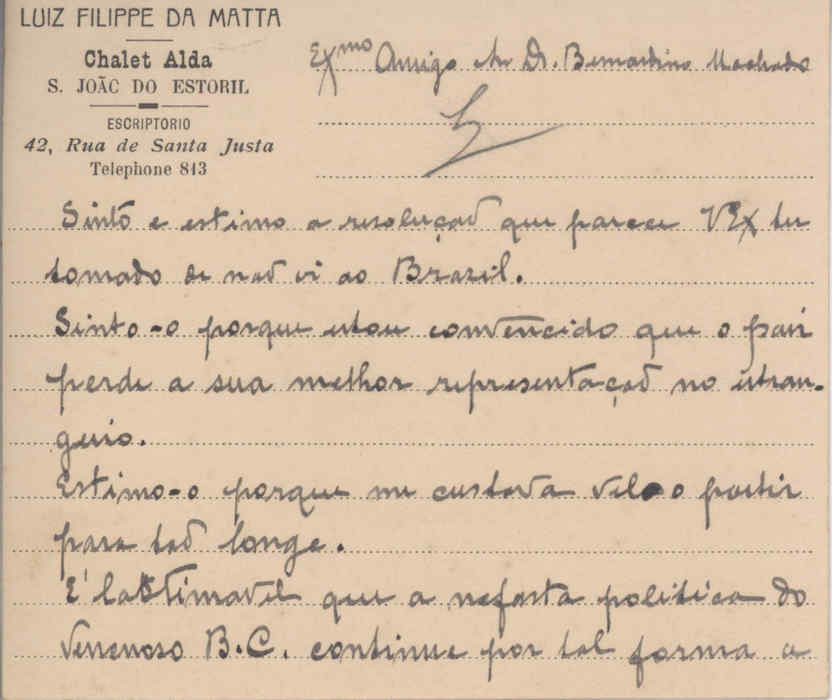 LUIZ FILIPPE DA MATTA
Chalet Alda
S. JOÃC DO ESTORIL
ESCRIPTORIO
42, Rua de Santa Justa
Telephone 813
Exmo Amigo Snr Dr. Bernardino Machado
Sinto e estimo a resolução que parece VEx ter
tomado de não ir ao Brazil.
Sinto-o porque estou convencido que o paiz
perde a sua melhor representação no estran-
geiro.
Estimo-o porque me custava vel-o partir
para tão longe.
E' lastimavel que a nefasta politica do
venenoso B.C. continue por tal forma a